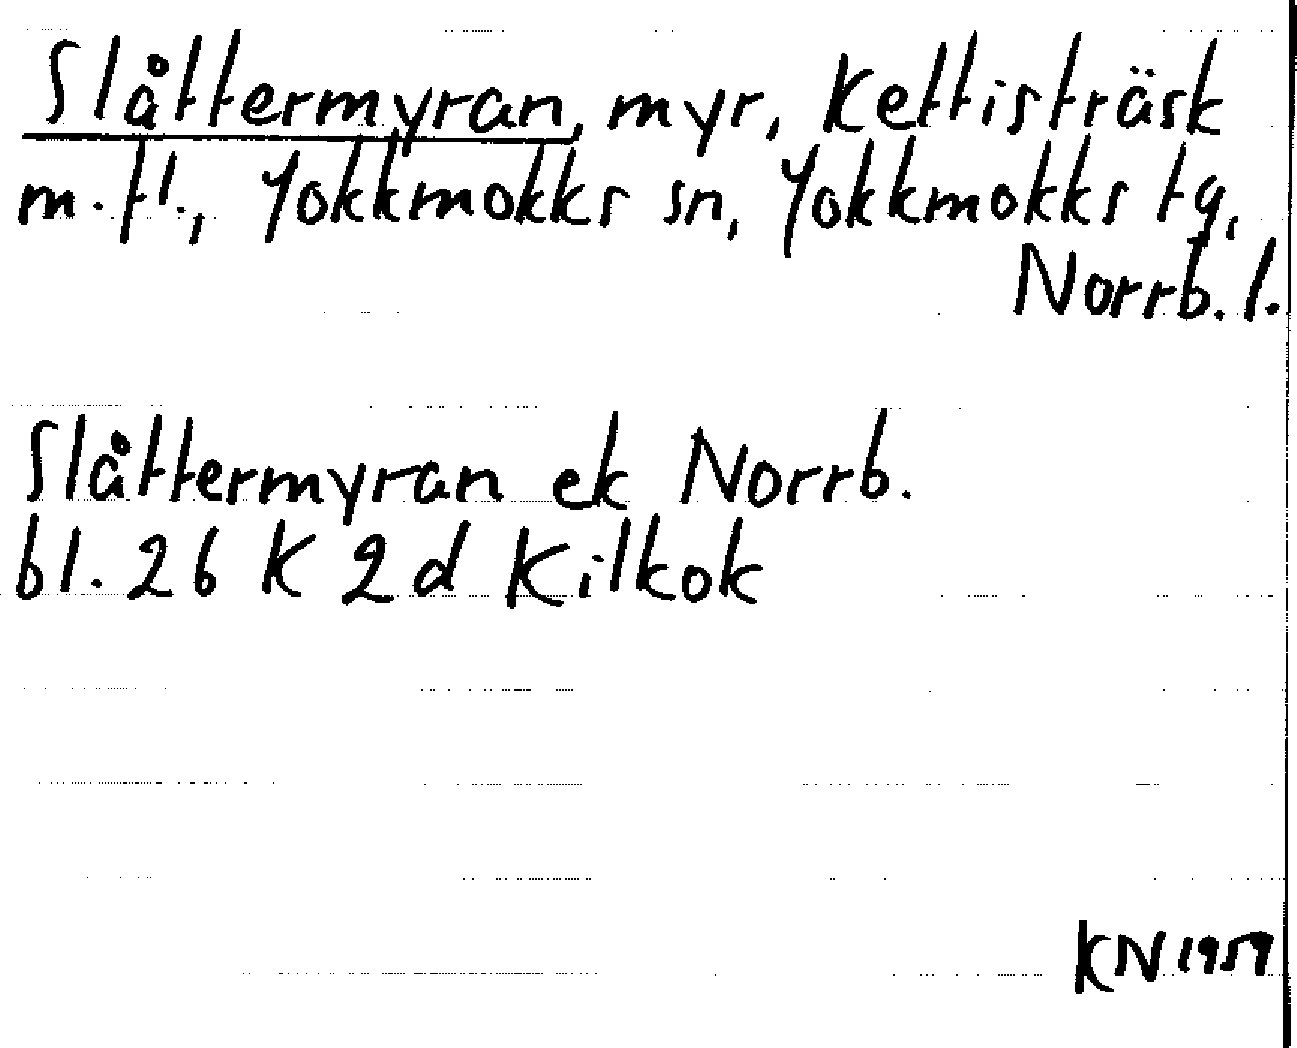 Slåttermyran, myr, Kettisträsk
m.fl., Jokkmokks sn, Jokkmokks tg,
Norrb. l.
Slåttermyran ek Norrb.
bl. 26 K 2d Kilkok
KN 1959